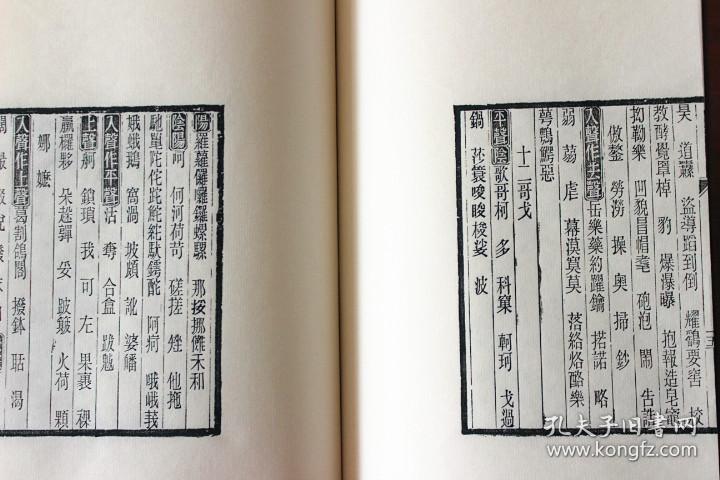 昊 道蕹 盜導蹈到倒 耀鷂要窖 校
教酵覺罩棹 豹 爆瀑曝 抱報造皂竈
抝勒樂 凹貌冒帽耄 砲泡 鬧 告誥
傲鏊 勞澇 操 奥 掃 鈔
入聲作去聲岳樂藥約躍鑰 掿諾 略
弱 蒻 虐 幕漠寞莫 落絡烙酪樂
萼鶚鰐惡
十二哥戈
平聲陰歌哥柯 多 科窠 軻珂 戈過
鍋 莎蓑唆睃梭娑 波
陽羅蘿儸囉鑼螺騾 那挼挪儺禾和
陰陽呵 何河荷苛 磋搓 矬 他拖
馳䭾陀佗跎鮀紽馱酡 阿痾 哦峨莪
娥蛾鵝 窩渦 坡頗 訛 婆皤
入聲作平聲活 奪 合盒 跋魃
上聲舸 鎖瑣 我 可 左 果裹 裸
蠃欏夥 朵趓嚲 妥 跛簸 火荷 顆
娜 嬤
入聲作上聲葛割鴿閤 撥鉢 聒 渴
闊 撮 掇 脫
孔夫子旧書网
www.kongfz.com